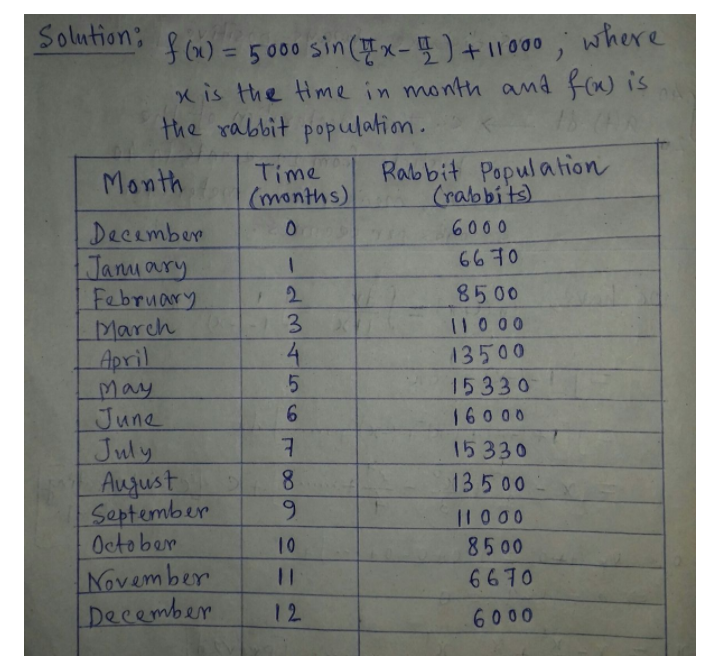 Solution: f(x) = 5000 sin(π/6 x - π/2) + 11000 ; where
x is the time in month and f(x) is
the rabbit population.
Month Time (months) Rabbit Population (rabbits)
December 0 6000
January 1 6670
February 2 8500
March 3 11000
April 4 13500
May 5 15330
June 6 16000
July 7 15330
August 8 13500
September 9 11000
October 10 8500
November 11 6670
December 12 6000